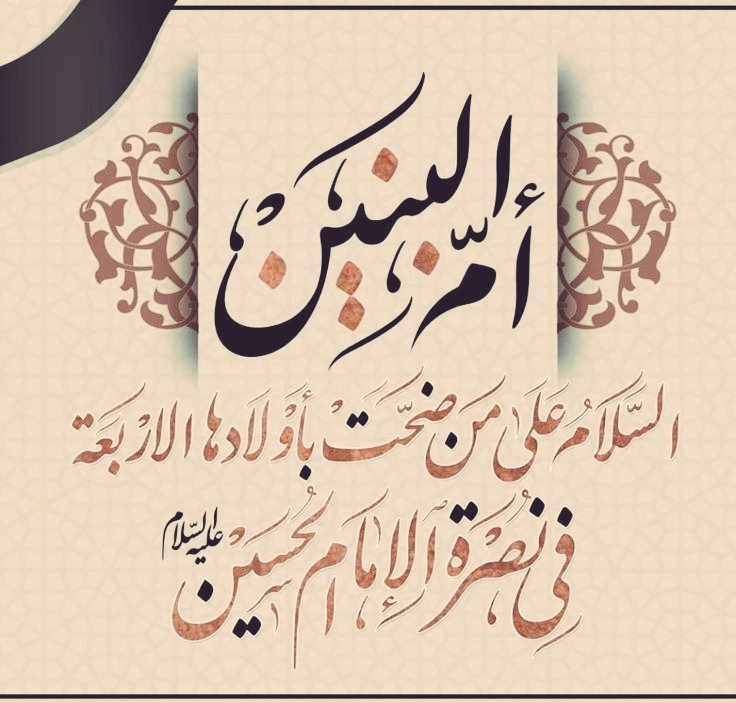 أمّ البنين
السَّلَامُ عَلَىٰ مَن ضَحَّتْ بأَوْلَادِها الارْبَعَة
فِي نُصْرَةِ الإِمَامِ الحُسَيْن عليه السّلام